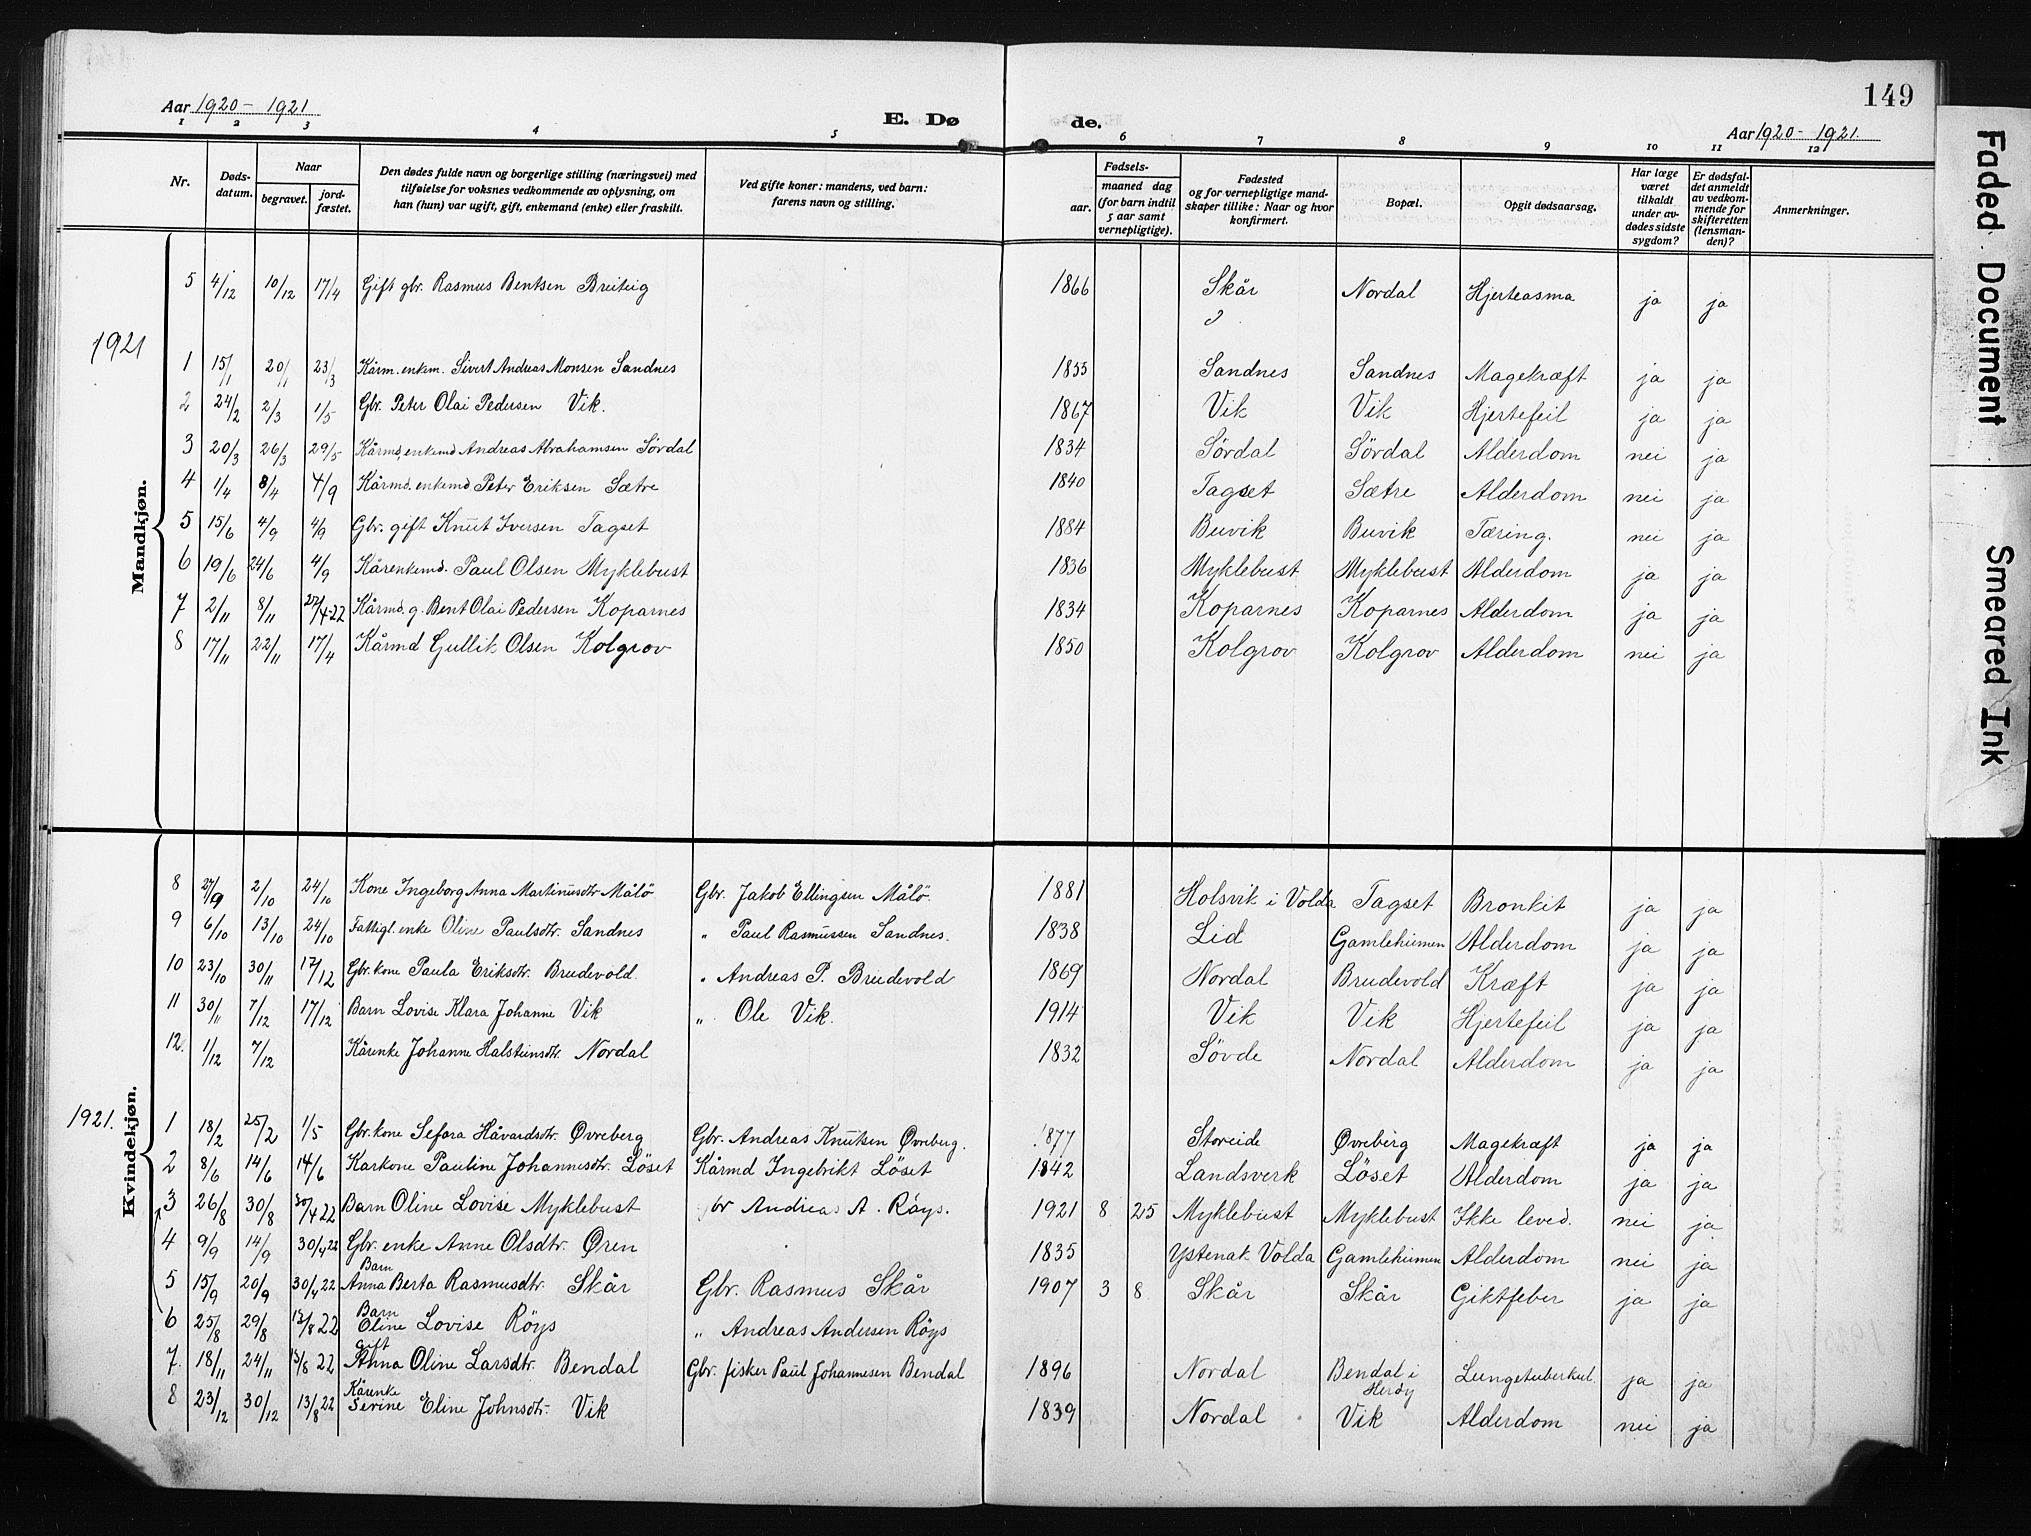 149
Aar 1920 - 1921
E. Døde.
Aar 1920 - 1921.
1 2 3 4 5 6 7 8 9 10 11 12
Nr.
Dødsdatum.
Naar
begravet.
jordfæstet.
Den dødes fulde navn og borgerlige stilling (næringsvei) med tilføielse for voksnes vedkommende av oplysning, om han (hun) var ugift, gift, enkemand (enke) eller fraskilt.
Ved gifte koner: mandens, ved barn: farens navn og stilling.
Fødsels-
aar.
maaned dag (for barn indtil 5 aar samt vernepligtige).
Fødested og for vernepligtige mandskaper tillike: Naar og hvor konfirmert.
Bopæl.
Opgit dødsaarsag.
Har læge været tilkaldt under avdødes sidste sygdom?
Er dødsfaldet anmeldt av vedkommende for skifteretten (lensmanden)?
Anmerkninger.
Mandkjøn.
5 4/12 10/12 17/4 Gift gbr. Rasmus Bentsen Breiteig 1866 Skår Nordal Hjerteasma ja ja
1921
1 15/1 20/1 23/3 Kårm. enkem. Sivert Andreas Monsen Sandnes 1855 Sandnes Sandnes Magekræft ja ja
2 24/2 2/3 1/5 Gbr. Peter Olai Pedersen Vik. 1867 Vik Vik Hjertefeil ja ja
3 20/3 26/3 29/5 Kårmd. enkemd Andreas Abrahamsen Sördal 1834 Sördal Sördal Alderdom nei ja
4 1/4 8/4 4/9 Kårmd. enkemd Peter Eriksen Sætre 1840 Tagset Sætre Alderdom nei ja
5 15/6 4/9 4/9 Gbr. gift Knut Iversen Tagset 1884 Buvik Buvik Tæring. nei ja
6 19/6 24/6 4/9 Kårenkemd. Paul Olsen Myklebust 1836 Myklebust Myklebust Alderdom ja ja
7 2/11 8/11 27/4-22 Kårmd. g. Bent Olai Pedersen Koparnes 1834 Koparnes Koparnes Alderdom ja ja
8 17/11 22/11 17/4 Kårmd Gullik Olsen Kolgrov 1850 Kolgrov Kolgrov Alderdom nei ja
Kvindekjøn.
8 27/9 2/10 24/10 Kone Ingeborg Anna Martinusdtr Målö Gbr. Jakob Ellingsen Målö. 1881 Holsvik i Volda Tagset Bronkit ja ja
9 6/10 13/10 24/10 Fattigl. enke Oline Paulsdtr. Sandnes " Paul Rasmussen Sandnes. 1838 Lid Gamleheimen Alderdom ja ja
10 23/10 30/11 17/12 Gbr. kone Paula Eriksdtr. Brudevold. " Andreas P. Brudevold 1869 Nordal Brudevold Kræft ja ja
11 30/11 7/12 17/12 Barn Lovise Klara Johanne Vik " Ole Vik. 1914 Vik Vik Hjertefeil ja ja
12. 1/12 7/12 Kårenke Johanne Halsteinsdtr. Nordal 1832 Sövde Nordal Alderdom ja ja
1921.
1 18/2 25/2 1/5 Gbr. kone Sefara Håvardsdtr. Øvreberg Gbr. Andreas Knutsen Øvreberg. 1877 Storeide Øvreberg Magekræft ja ja
2 8/6 14/6 14/6 Karkone Pauline Johannesdtr. Löset Kårmd Ingebrikt Löset 1842 Landsverk Löset Alderdom ja ja
3 26/8 30/8 30/4 22 Barn Oline Lovise Myklebust Gbr Andreas A. Röys. 1921 8 25 Myklebust Myklebust Ikke leved. nei ja
4 9/9 14/9 30/4 22 Gbr. enke Anne Olsdtr. Øren 1835 Ystenak Volda Gamleheimen Alderdom nei ja
5 15/9 20/9 30/4 22 Barn Anna Berta Rasmusdtr. Skår Gbr. Rasmus Skår 1907 3 8 Skår Skår Giktfeber ja ja
6 25/8 29/8 13/8 22 Barn Oline Lovise Röys " Andreas Andersen Röys
7. 18/11 24/11 13/8 22 Gift Anna Oline Larsdtr. Bendal Gbr. fisker Paul Johannesen Bendal 1896 Nordal Bendal i Heröy Lungetuberkul. ja ja
8 23/12 30/12 13/8 22 Kårenke Serine Eline Johnsdtr. Vik 1839 Nordal Vik Alderdom nei ja
Faded Document
Smeared Ink